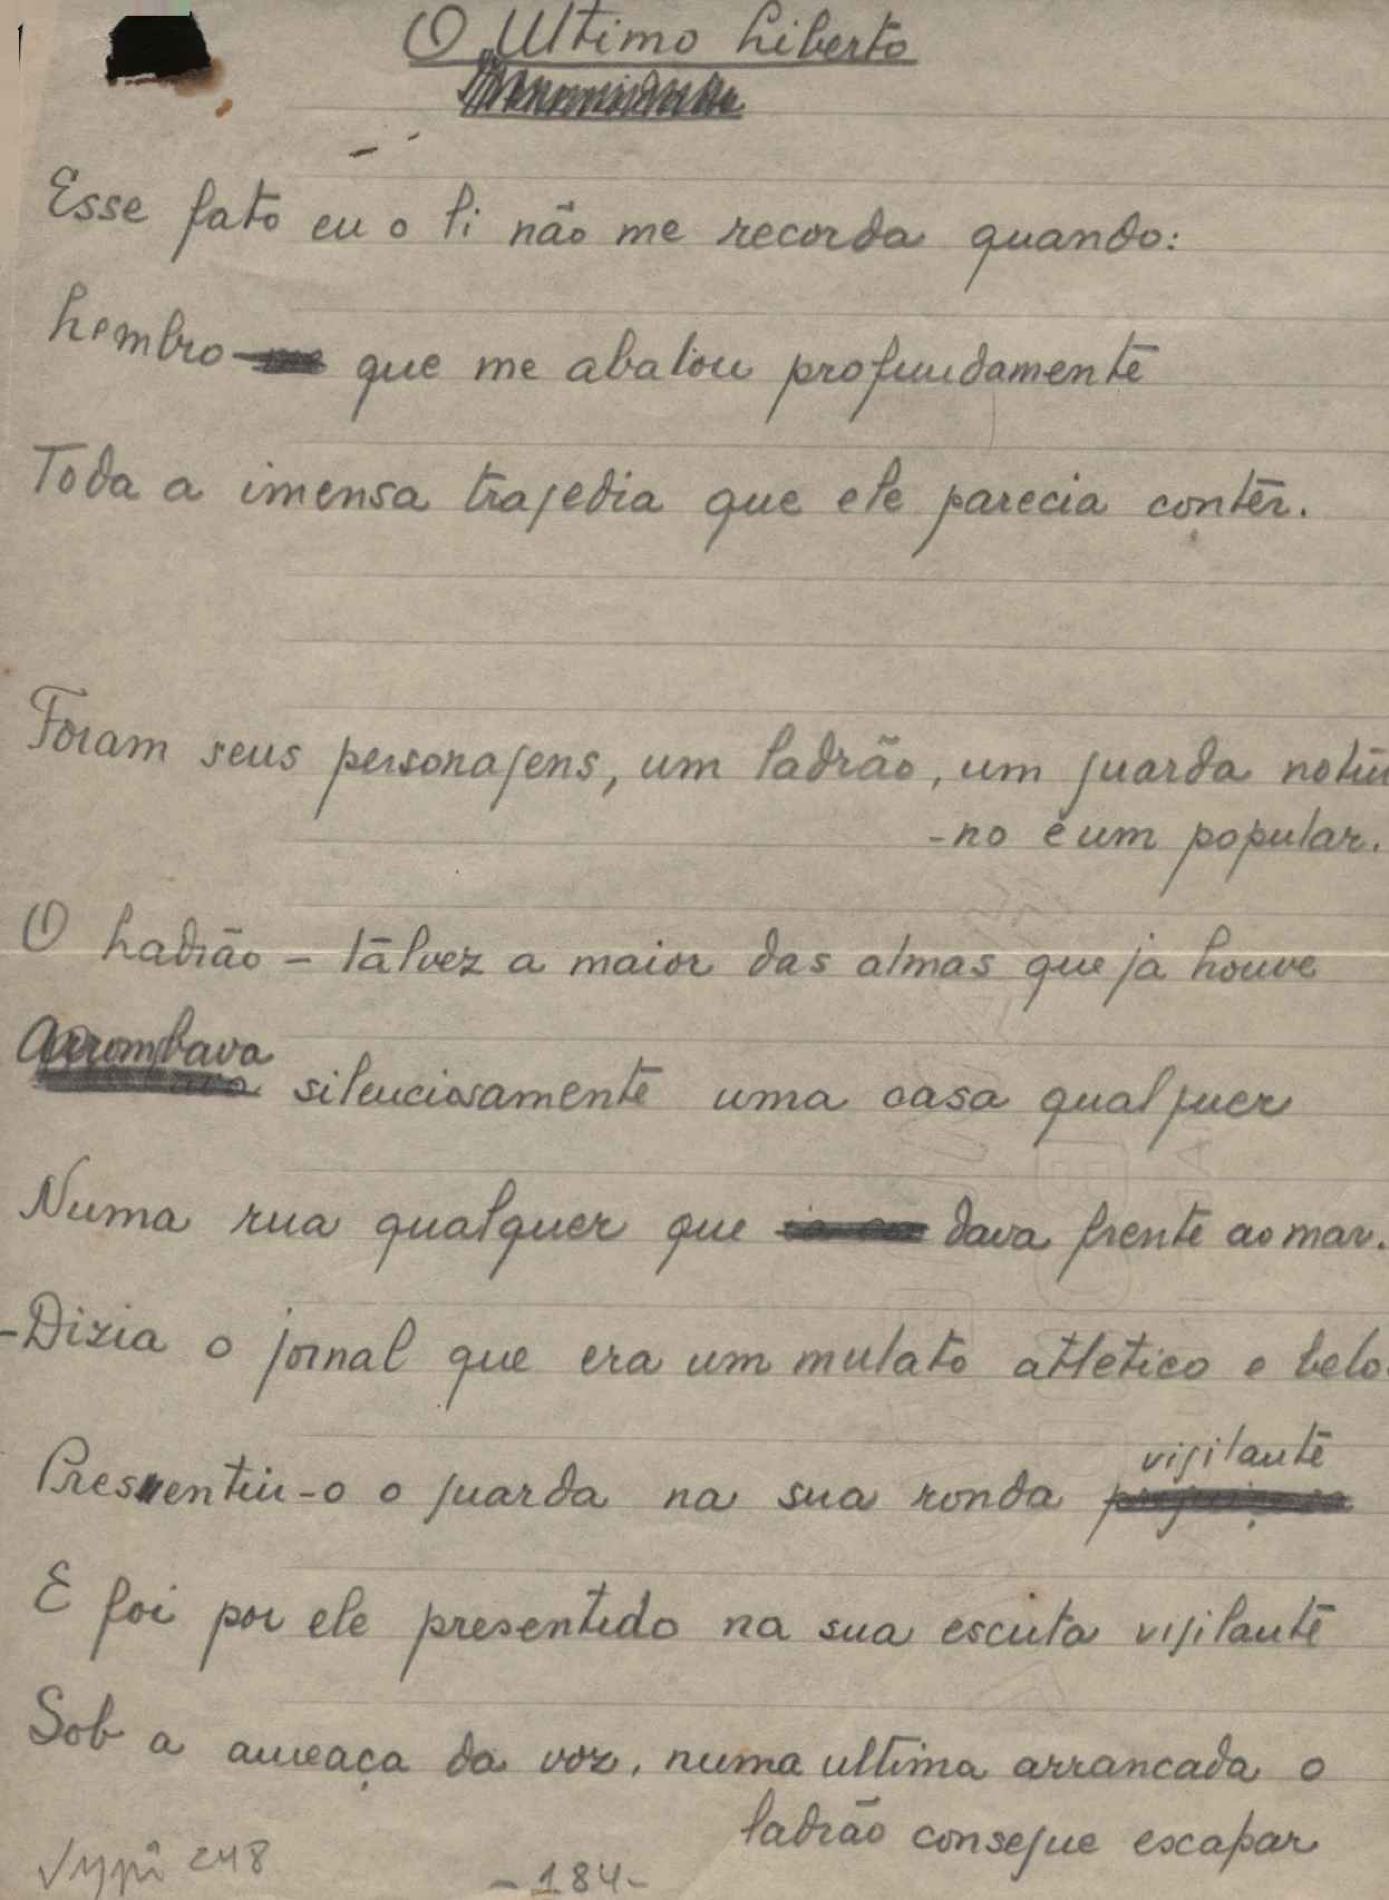 O Ultimo Liberto
Esse fato eu o li não me recorda quando:
Lembro que me abalou profundamente
Toda a imensa tragedia que ele parecia conter.
Foram seus personagens, um ladrão, um guarda notur
-no e um popular.
O Ladrão - talvez a maior das almas que já houve
Arrombava silenciosamente uma casa qualquer
Numa rua qualquer que dava frente ao mar.
-Dizia o jornal que era um mulato atletico e belo.
vigilante
Pressentiu-o o guarda na sua ronda
E foi por ele presentido na sua escuta vigilante
Sob a ameaça da voz, numa ultima arrancada o
ladrão consegue escapar
248
-184-